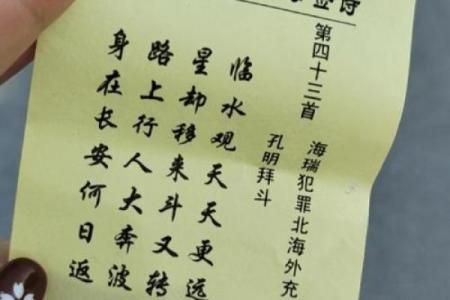 签诗
第四十三首
海瑞犯罪北海外充
孔明拜斗
临水观天天更远
星却移来斗又转
路上行人大奔波
身在长安何日返